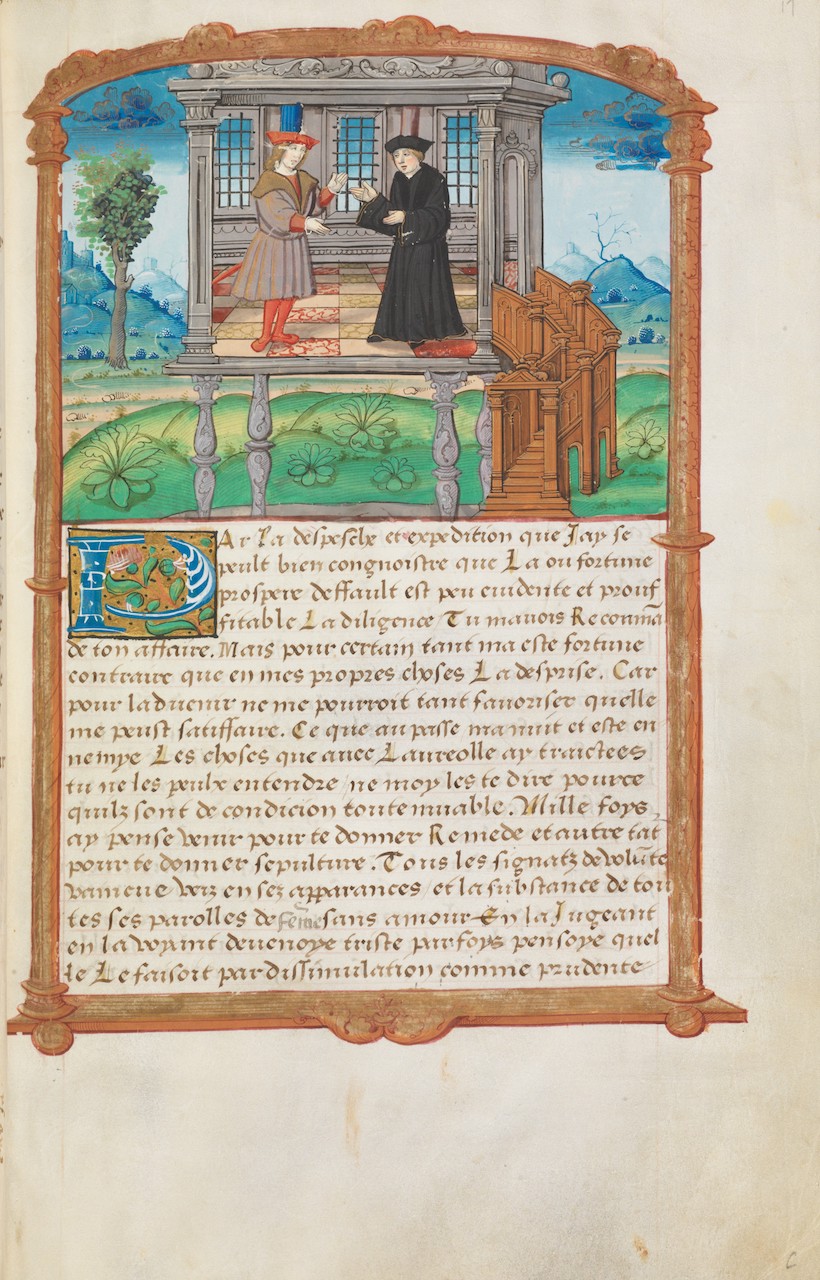 17
PAr La despesche et expedition que Jay se
peult bien congnoistre que La ou fortune
prospere deffault est peu euidente et prouf
fitable La diligence Tu mauois Recomma
de ton affaire. Mais pour certain tant ma este fortune
contraire que en mes propres choses La desprise. Car
pour laduenir ne me pourroit tant fauoriser quelle
me peust satiffaire. Ce que au passe ma nuit et este en
nemye Les choses que auec Laureolle ay traictees
tu ne les peulx entendre / ne moy les te dire pource
quilz sont de condicion toute muable. Mille foys
ay pense venir pour te donner Remede et autre tāt
pour te donner sepulture. Tous les signatz de volūte
vaincue viz en sez apparances / et la substance de tou
tes ses parolles de feme sans amour En la Jugeant
en la voyant deuenoye triste par foys pensoye quel
le Le faisoit par dissimulation comme prudente
C